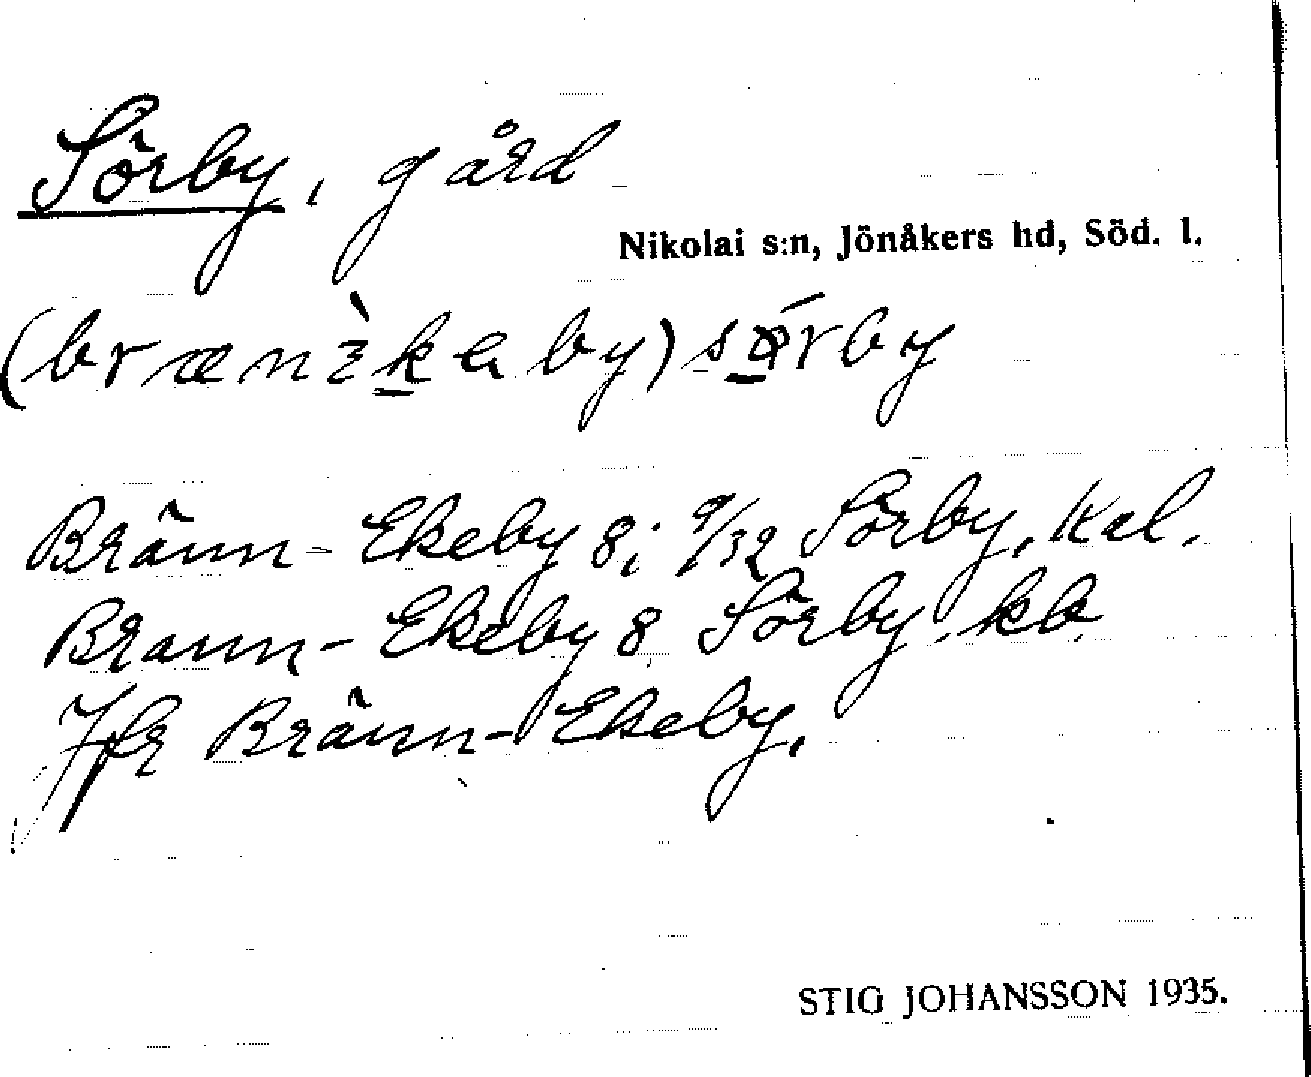 Sörby, gård
Nikolai s:n, Jönåkers hd, Söd. l.
sǿrby
Bränn-Ekeby 8; 9/32 Sörby, Kal.
Brann-Ekeby 8 Sörby, kb
Jfr Bränn-Ekeby.
STIG JOHANSSON 1935.